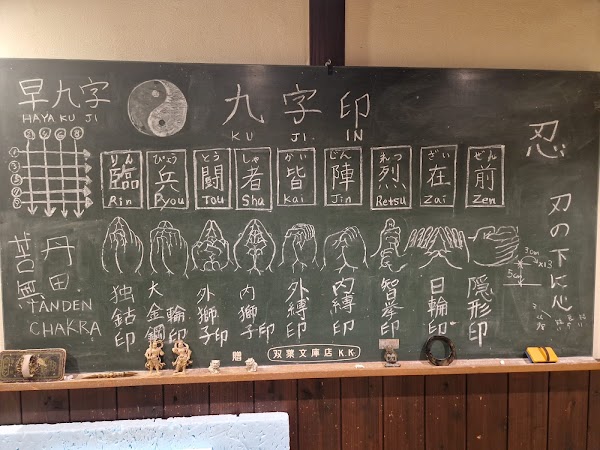 早九字
HAYA KU JI
九字印
KU JI IN
りん ぴょう とう しゃ かい じん れつ ざい ぜん
臨 兵 闘 者 皆 陣 烈 在 前
Rin Pyou Tou Sha Kai Jin Retsu Zai Zen
独鈷印
大金剛輪印
外獅子印
内獅子印
外縛印
内縛印
智拳印
日輪印
隠形印
忍
刃の下に心
3cm
5cm
丹田
TANDEN
CHAKRA
贈 双葉文庫店 K.K.